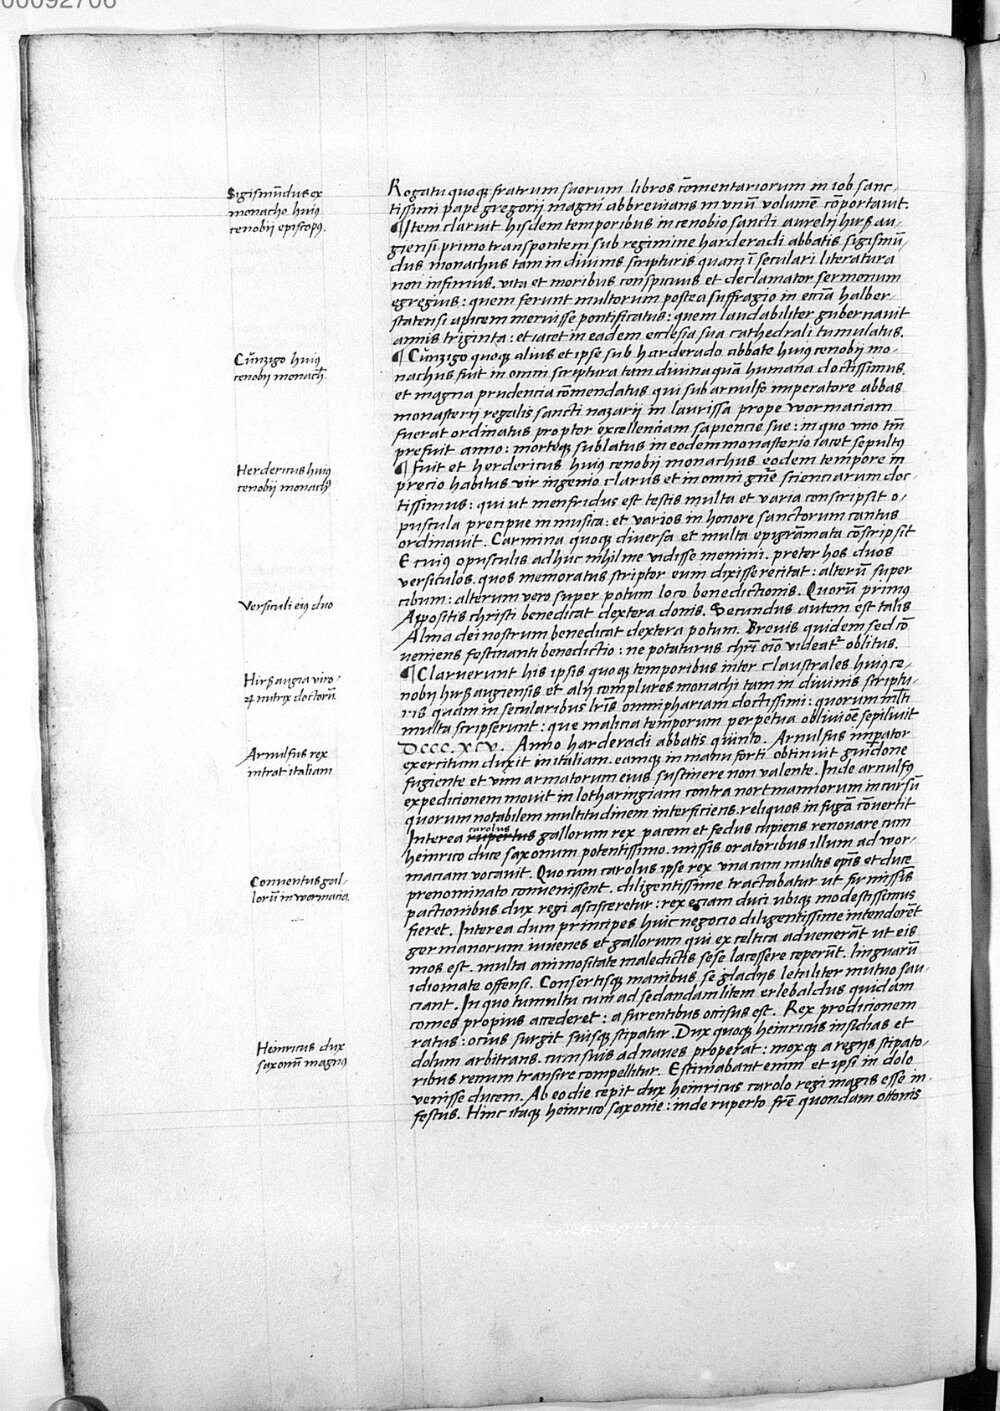 00092706
Sigismūdus ex
monacho huiꝰ
cenobij episcopꝰ.
Rogatu quoqꝫ fratrum suorum libros cōmentariorum in iob sanc-
tissimi pape gregorij magni abbrevians in vnū volumē cōportavit.
¶ Item claruit hisdem temporibus in cenobio sancti aurelij hirßau-
giensi primo transponteni sub regimine harderadi abbatis sigismū-
dus monachus tam in divinis scripturis quam ī seculari literatura
non infimus. vita et moribus conspicuus et declamator sermonum
egregius: quem ferunt multorum postea suffragio in eccīa halber-
statensi apicem meruisse pontificatus: quem laudabiliter gubernavit
annis triginta: et iacet in eadem ecclesia sua cathedrali tumulatus.
Cūnzigo huiꝰ
cenobij monachꝰ
¶ Cūnzigo quoqꝫ alius et ipse sub harderado abbate huiꝰ cenobij mo-
nachus fuit in omni scriptura tam divina quā humana doctissimus.
et magna prudencia cōmendatus qui sub arnulfo imperatore abbas
monasterij regalis sancti nazarij in laurissa prope wormaciam
fuerat ordinatus propter excellenciam sapiencie sue: in quo vno tm̄
prefuit anno: morteqꝫ sublatus in eodem monasterio iacet sepultꝰ
Herdericus huiꝰ
cenobij monachꝰ
¶ Fuit et herdericus huiꝰ cenobij monachus eodem tempore in
precio habitus vir ingenio clarus et in omni gn̄e scienciarum doc-
tissimus: qui ut menfridus est testis multa et varia conscripsit o-
puscula precipue in musica: et varios in honore sanctorum cantus
ordinavit. Carmina quoqꝫ diversa et multa epigrāmata cōscripsit
E cuiꝰ opusculis adhuc nihil me vidisse memini. preter hos duos
versiculos. quos memoratus scriptor eum dixisse recitat: alterū super
Versiculi eiꝰ duo
cibum: alterum vero super potum loco benedictionis. Quorū primꝰ
Appositis christi benedicat dextera donis. Secundus autem est talis
Alma dei nostrum benedicat dextera potum. Brevis quidem sed cō-
veniens festinanti benedictio: ne potaturus chrī oīo videatᷣ oblitus.
Hirßaugia viro-
ꝝ nutrix doctorū
¶ Claruerunt his ipsis quoqꝫ temporibus inter claustrales huiꝰ ce-
nobij hirßaugiensis et alij complures monachi tam in divinis scriptu-
ris quam in secularibus lr̄is omniphariam doctissimi: quorum ml̄ti
multa scripserunt: que malicia temporum perpetua obliviōe sepilivit
Arnulfus rex
intrat italiam
DCCC.XCV. Anno harderadi abbatis quinto. Arnulfus imp̄ator
exercitum duxit in italiam. eamqꝫ in manu forti obtinuit guidone
fugiente et vim armatorum eius sustinere non valente. Inde arnulfꝰ
expedicionem movit in lotharingiam contra nortmannorum incursū
quorum notabilem multitudinem interficiens. reliquos in fugā cōvertit
carolus
Interea rupertus gallorum rex pacem et fedus cupiens renovare cum
heinrico duce saxonum potentissimo. missis oratoribus illum ad wor-
Conventus gal-
lorū in wormacia.
maciam vocavit. Quo cum carolus ipse rex vna cum multis ep̄is et duce
prenominato convenissent. diligentissime tractabatur ut firmissīs
pactionibus dux regi ascisceretur: rex eciam duci ubiqꝫ modestissimus
fieret. Interea dum principes huic negocio diligentissime intenderēt
germanorum iuvenes et gallorum qui ex celtica advenerāt ut eis
mos est. multa animositate maledictis sese lacessere ceperūt. linguarū
idiomate offensi. Consertisqꝫ manibus se gladijs letaliter mutuo sau-
ciant. In quo tumultu cum ad sedandam litem erlebaldus quidam
comes propius accederet: a furentibus occisus est. Rex prodicionem
Heinricus dux
saxonū magnꝰ
ratus: ocius surgit suisqꝫ stipatur. Dux quoqꝫ heinricus insidias et
dolum arbitrans. cum suis ad naves properat: moxqꝫ a regijs stipato-
ribus renum transire compellitur. Estimabant enim et ipsi in dolo
venisse ducem. Ab eo die cepit dux heinricus carolo regi magis esse in-
festus. Hinc itaqꝫ heinrico saxonie: inde ruperto fr̄e quondam ottonis